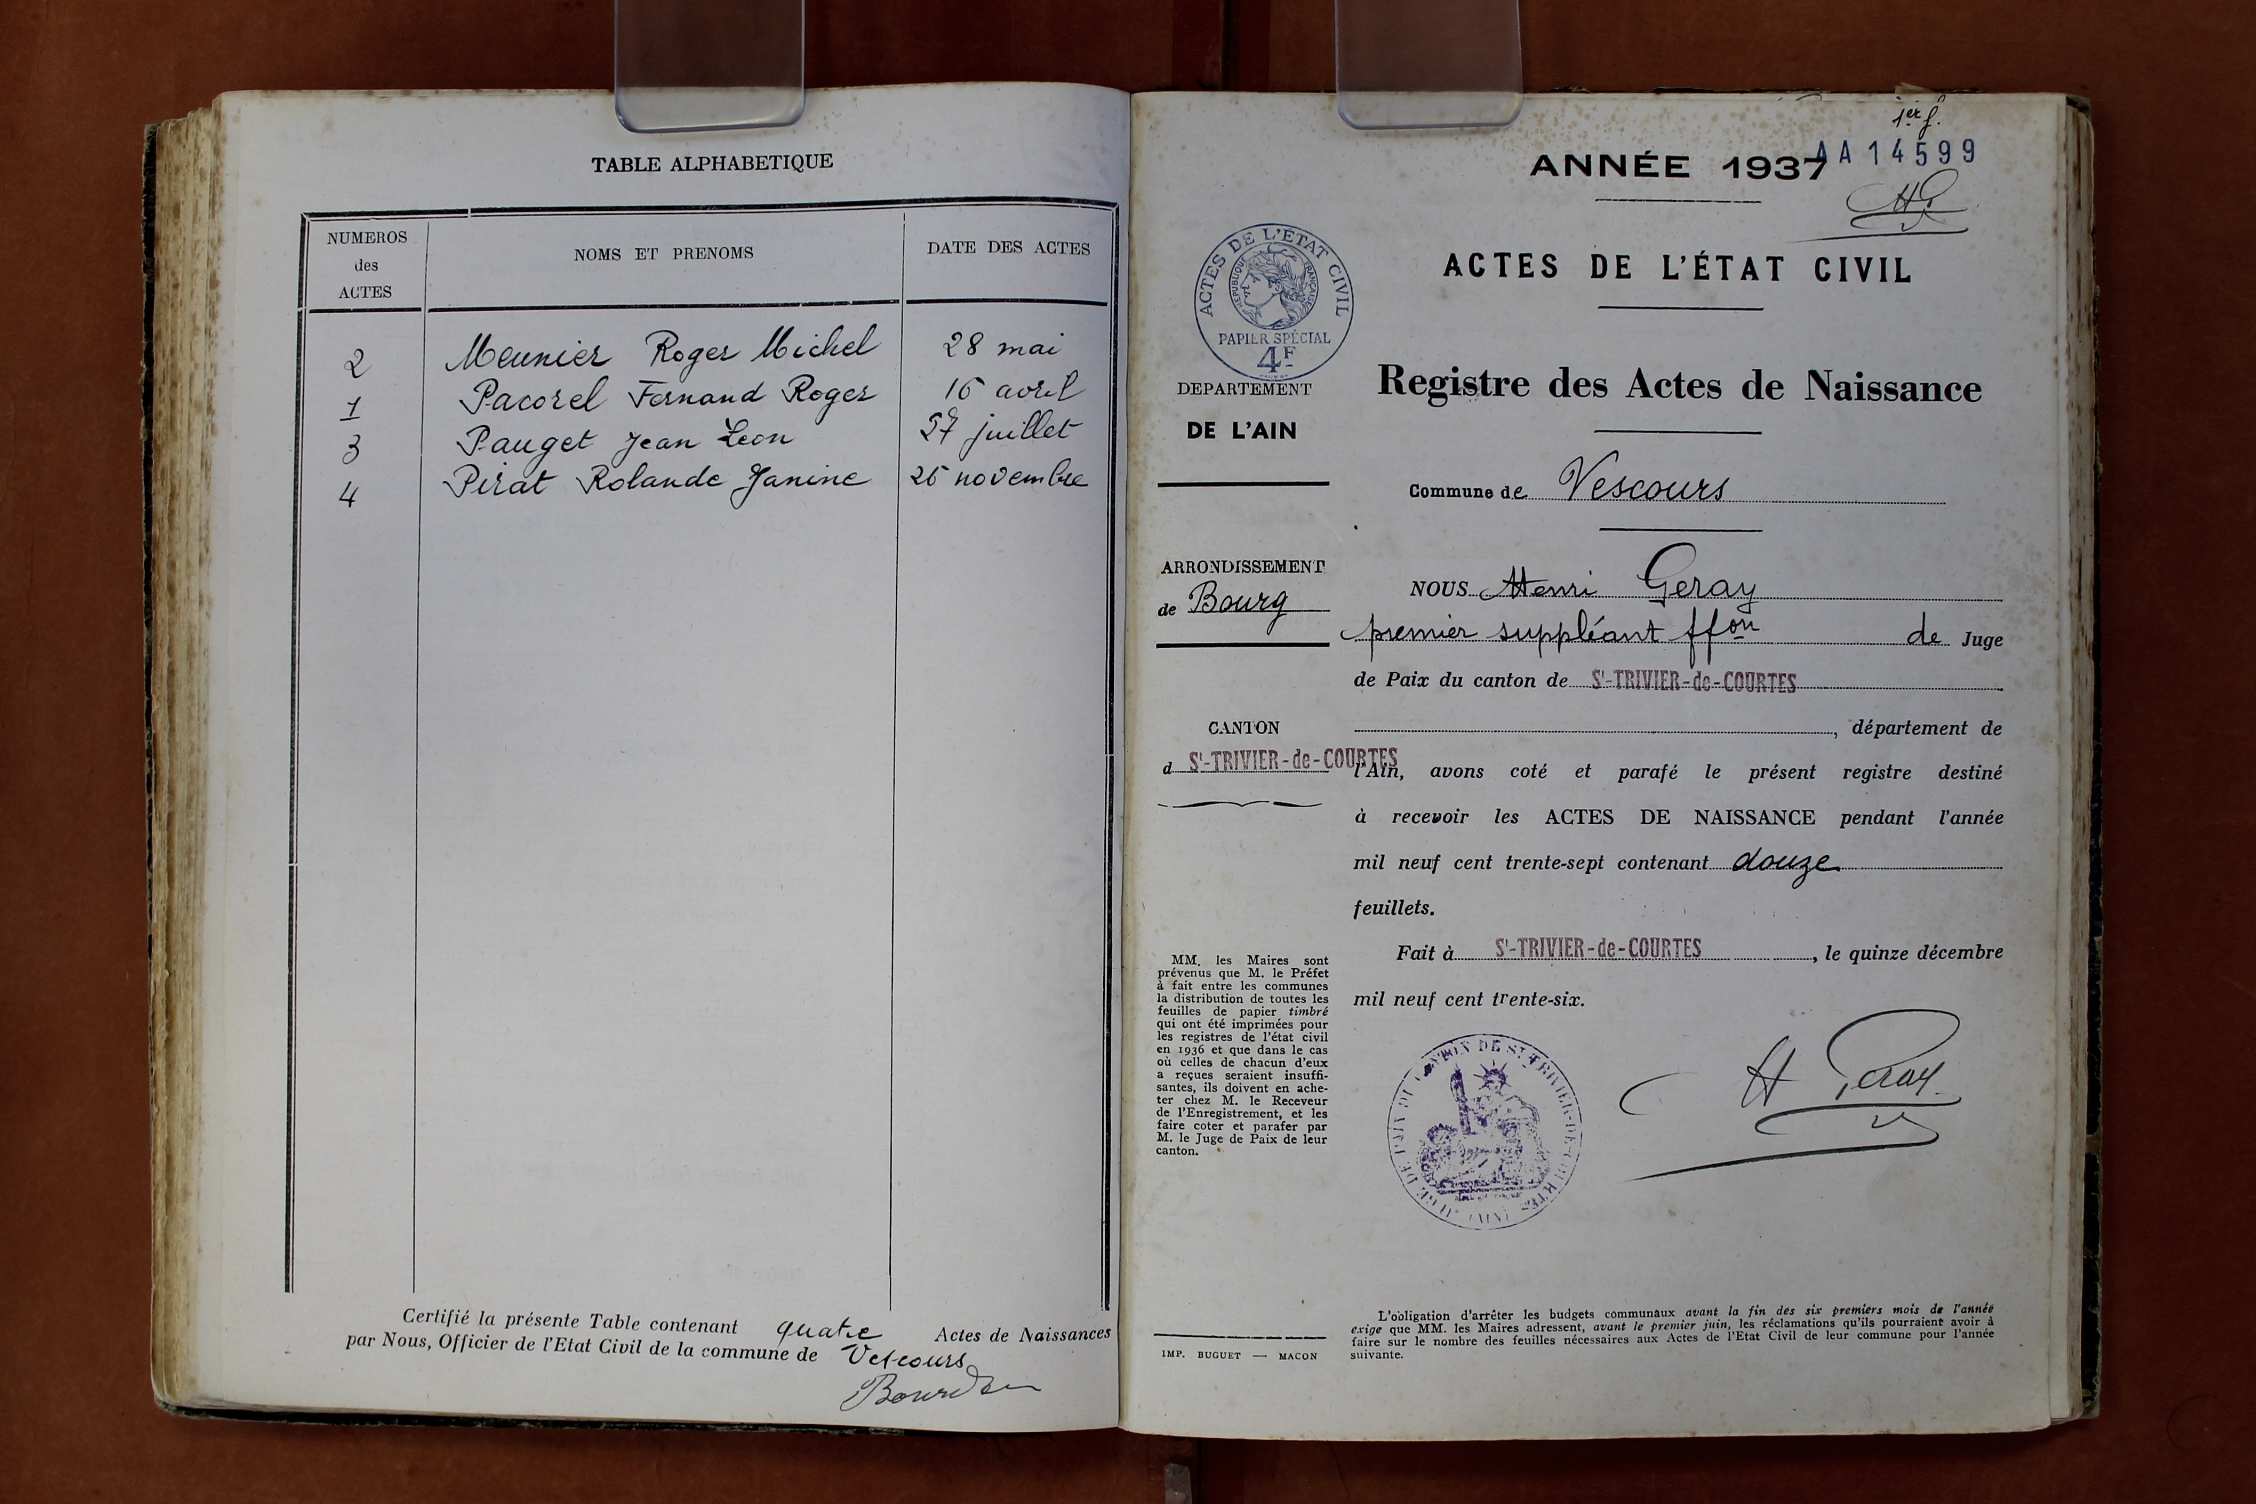 TABLE ALPHABETIQUE
NUMEROS
des
ACTES
NOMS ET PRENOMS
DATE DES ACTES
2 Meunier Roger Michel 28 mai
1 Pacorel Fernand Roger 16 avril
3 Pauget Jean Leon juillet
4 Pirat Rolande Janine 26 novembre
Certifié la présente Table contenant quatre Actes de Naissances
par Nous, Officier de l'Etat Civil de la commune de Vescours
1er f.
ANNÉE 1937
AA14599
HG
ACTES DE L'ÉTAT CIVIL
ACTES DE L'ÉTAT CIVIL
RÉPUBLIQUE FRANÇAISE
PAPIER SPÉCIAL
4F
DEPARTEMENT
DE L'AIN
Registre des Actes de Naissance
Commune de Vescours
ARRONDISSEMENT
de Bourg
NOUS Henri Geray
premier suppléant ffon de Juge
de Paix du canton de St-TRIVIER-de-COURTES
CANTON
d St-TRIVIER-de-COURTES
, département de
l'Ain, avons coté et parafé le présent registre destiné
à recevoir les ACTES DE NAISSANCE pendant l'année
mil neuf cent trente-sept contenant douze
feuillets.
Fait à St-TRIVIER-de-COURTES, le quinze décembre
mil neuf cent trente-six.
MM. les Maires sont
prévenus que M. le Préfet
à fait entre les communes
la distribution de toutes les
feuilles de papier timbré
qui ont été imprimées pour
les registres de l'état civil
en 1936 et que dans le cas
où celles de chacun d'eux
a reçues seraient insuffi-
santes, ils doivent en ache-
ter chez M. le Receveur
de l'Enregistrement, et les
faire coter et parafer par
M. le Juge de Paix de leur
canton.
H Geray
JUGE DE PAIX DU CANTON DE ST TRIVIER-DE-COURTES (AIN)
L'obligation d'arrêter les budgets communaux avant la fin des six premiers mois de l'année
exige que MM. les Maires adressent, avant le premier juin, les réclamations qu'ils pourraient avoir à
faire sur le nombre des feuilles nécessaires aux Actes de l'Etat Civil de leur commune pour l'année
suivante.
IMP. BUGUET — MACON